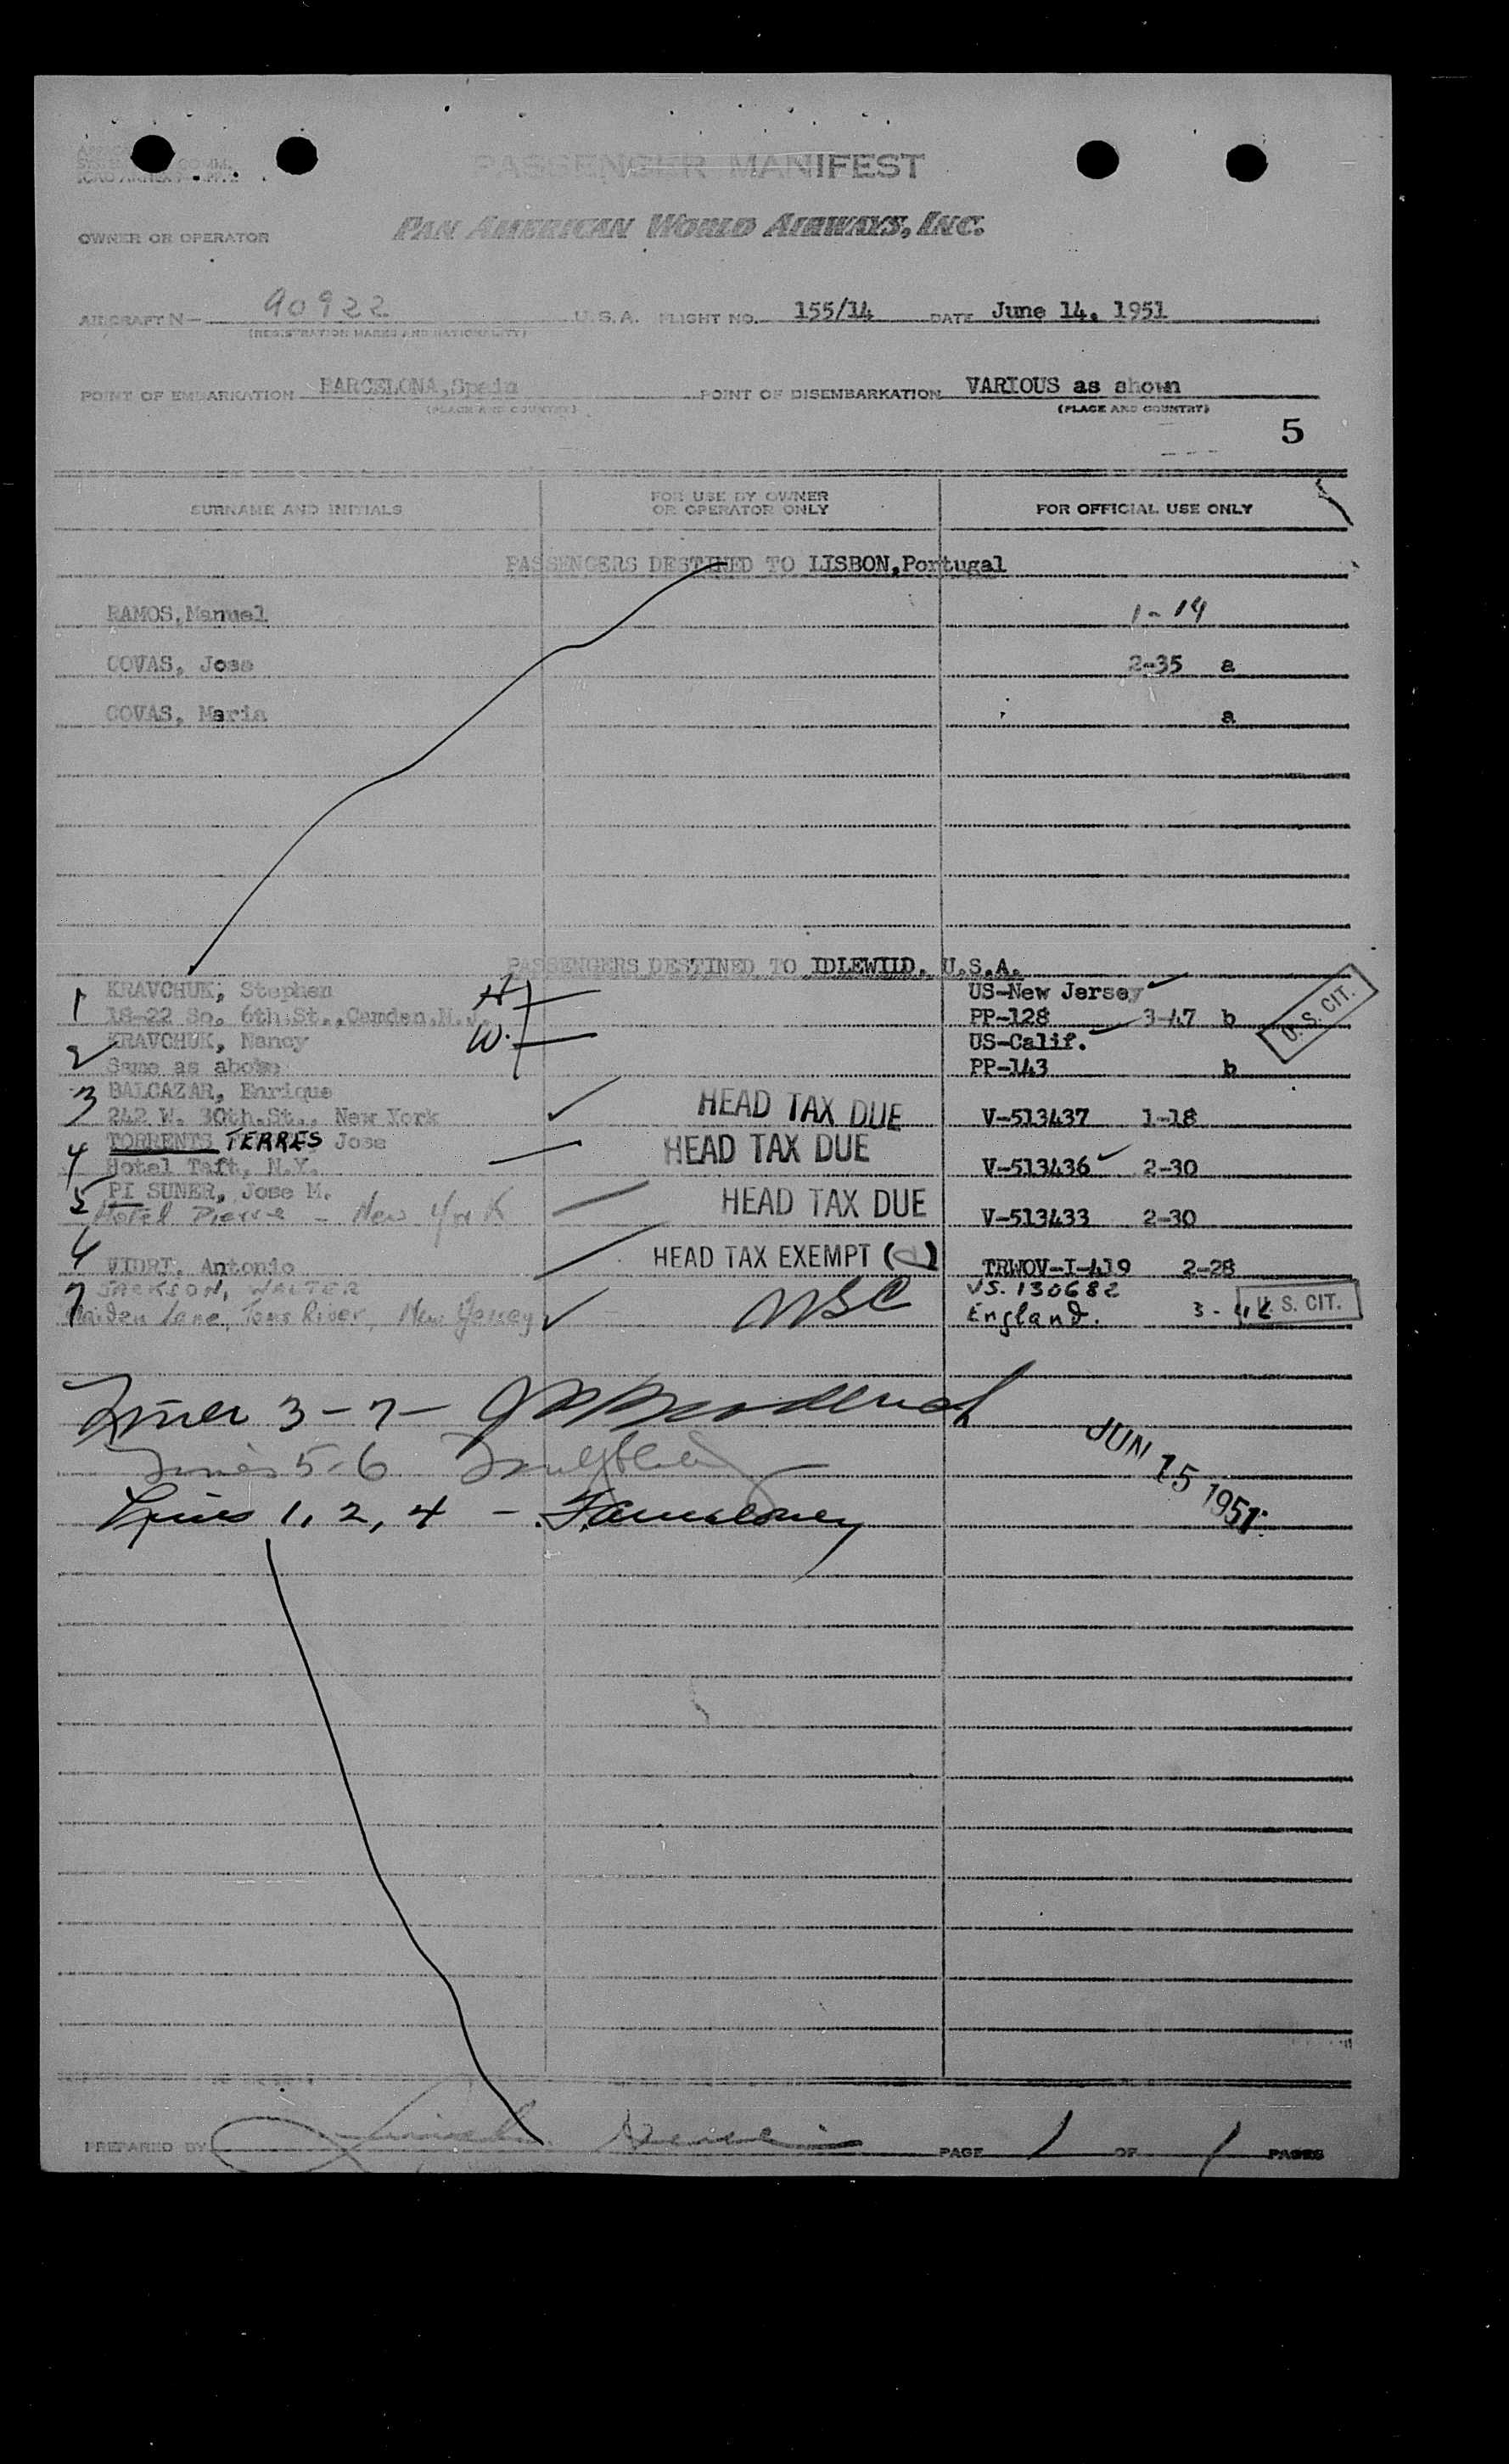 PASSENGER MANIFEST
PAN AMERICAN WORLD AIRWAYS, INC.
OWNER OR OPERATOR
AIRCRAFT N— 90922 U.S.A. FLIGHT NO. 155/14 DATE June 14, 1951
(REGISTRATION MARKS AND NATIONALITY)
POINT OF EMBARKATION BARCELONA,Spain POINT OF DISEMBARKATION VARIOUS as shown
(PLACE AND COUNTRY) (PLACE AND COUNTRY)
5
SURNAME AND INITIALS FOR USE BY OWNER OR OPERATOR ONLY FOR OFFICIAL USE ONLY
PASSENGERS DESTINED TO LISBON,Portugal
RAMOS,Manuel 1-14
COVAS, Jose 2-35 a
COVAS, Maria a
PASSENGERS DESTINED TO IDLEWILD, U.S.A.
1 KRAVCHUK, Stephen H US-New Jersey
18-22 So. 6th.St.,Camden,N.J. PP-128 3-47 b U. S. CIT.
2 KRAVCHUK, Nancy W. US-Calif.
Same as above PP-143 b
3 BALCAZAR, Enrique
242 W. 30th.St., New York HEAD TAX DUE V-513437 1-18
4 TORRENTS TERRES Jose
Hotel Taft, N.Y. HEAD TAX DUE V-513436 2-30
5 PI SUNER, Jose M.
Hotel Pierre - New York HEAD TAX DUE V-513433 2-30
6 VIDRI, Antonio HEAD TAX EXEMPT ( ) TRWOV-I-419 2-28
7 JACKSON, WALTER VS. 130682
Maiden Lane, Toms River, New Jersey NBC England. 3- U. S. CIT.
3-7-
5-6
Lines 1, 2, 4 -
JUN 15 1951
PREPARED BY PAGE 1 OF 1 PAGES